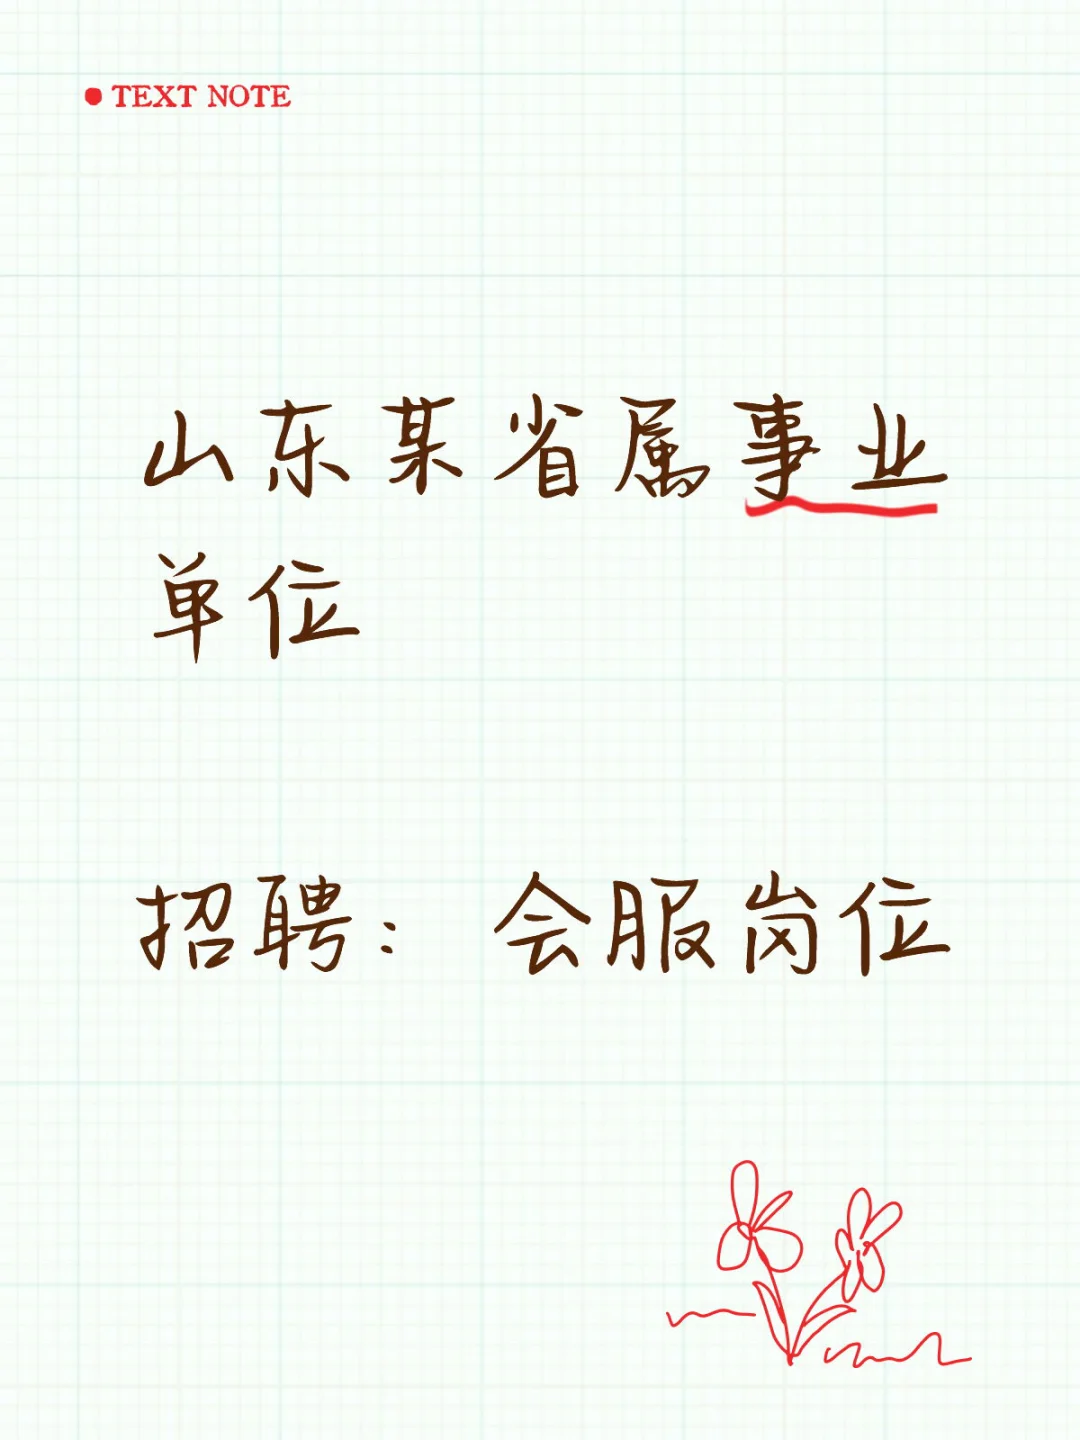 TEXT NOTE
山东某省属事业
单位
招聘：会服岗位